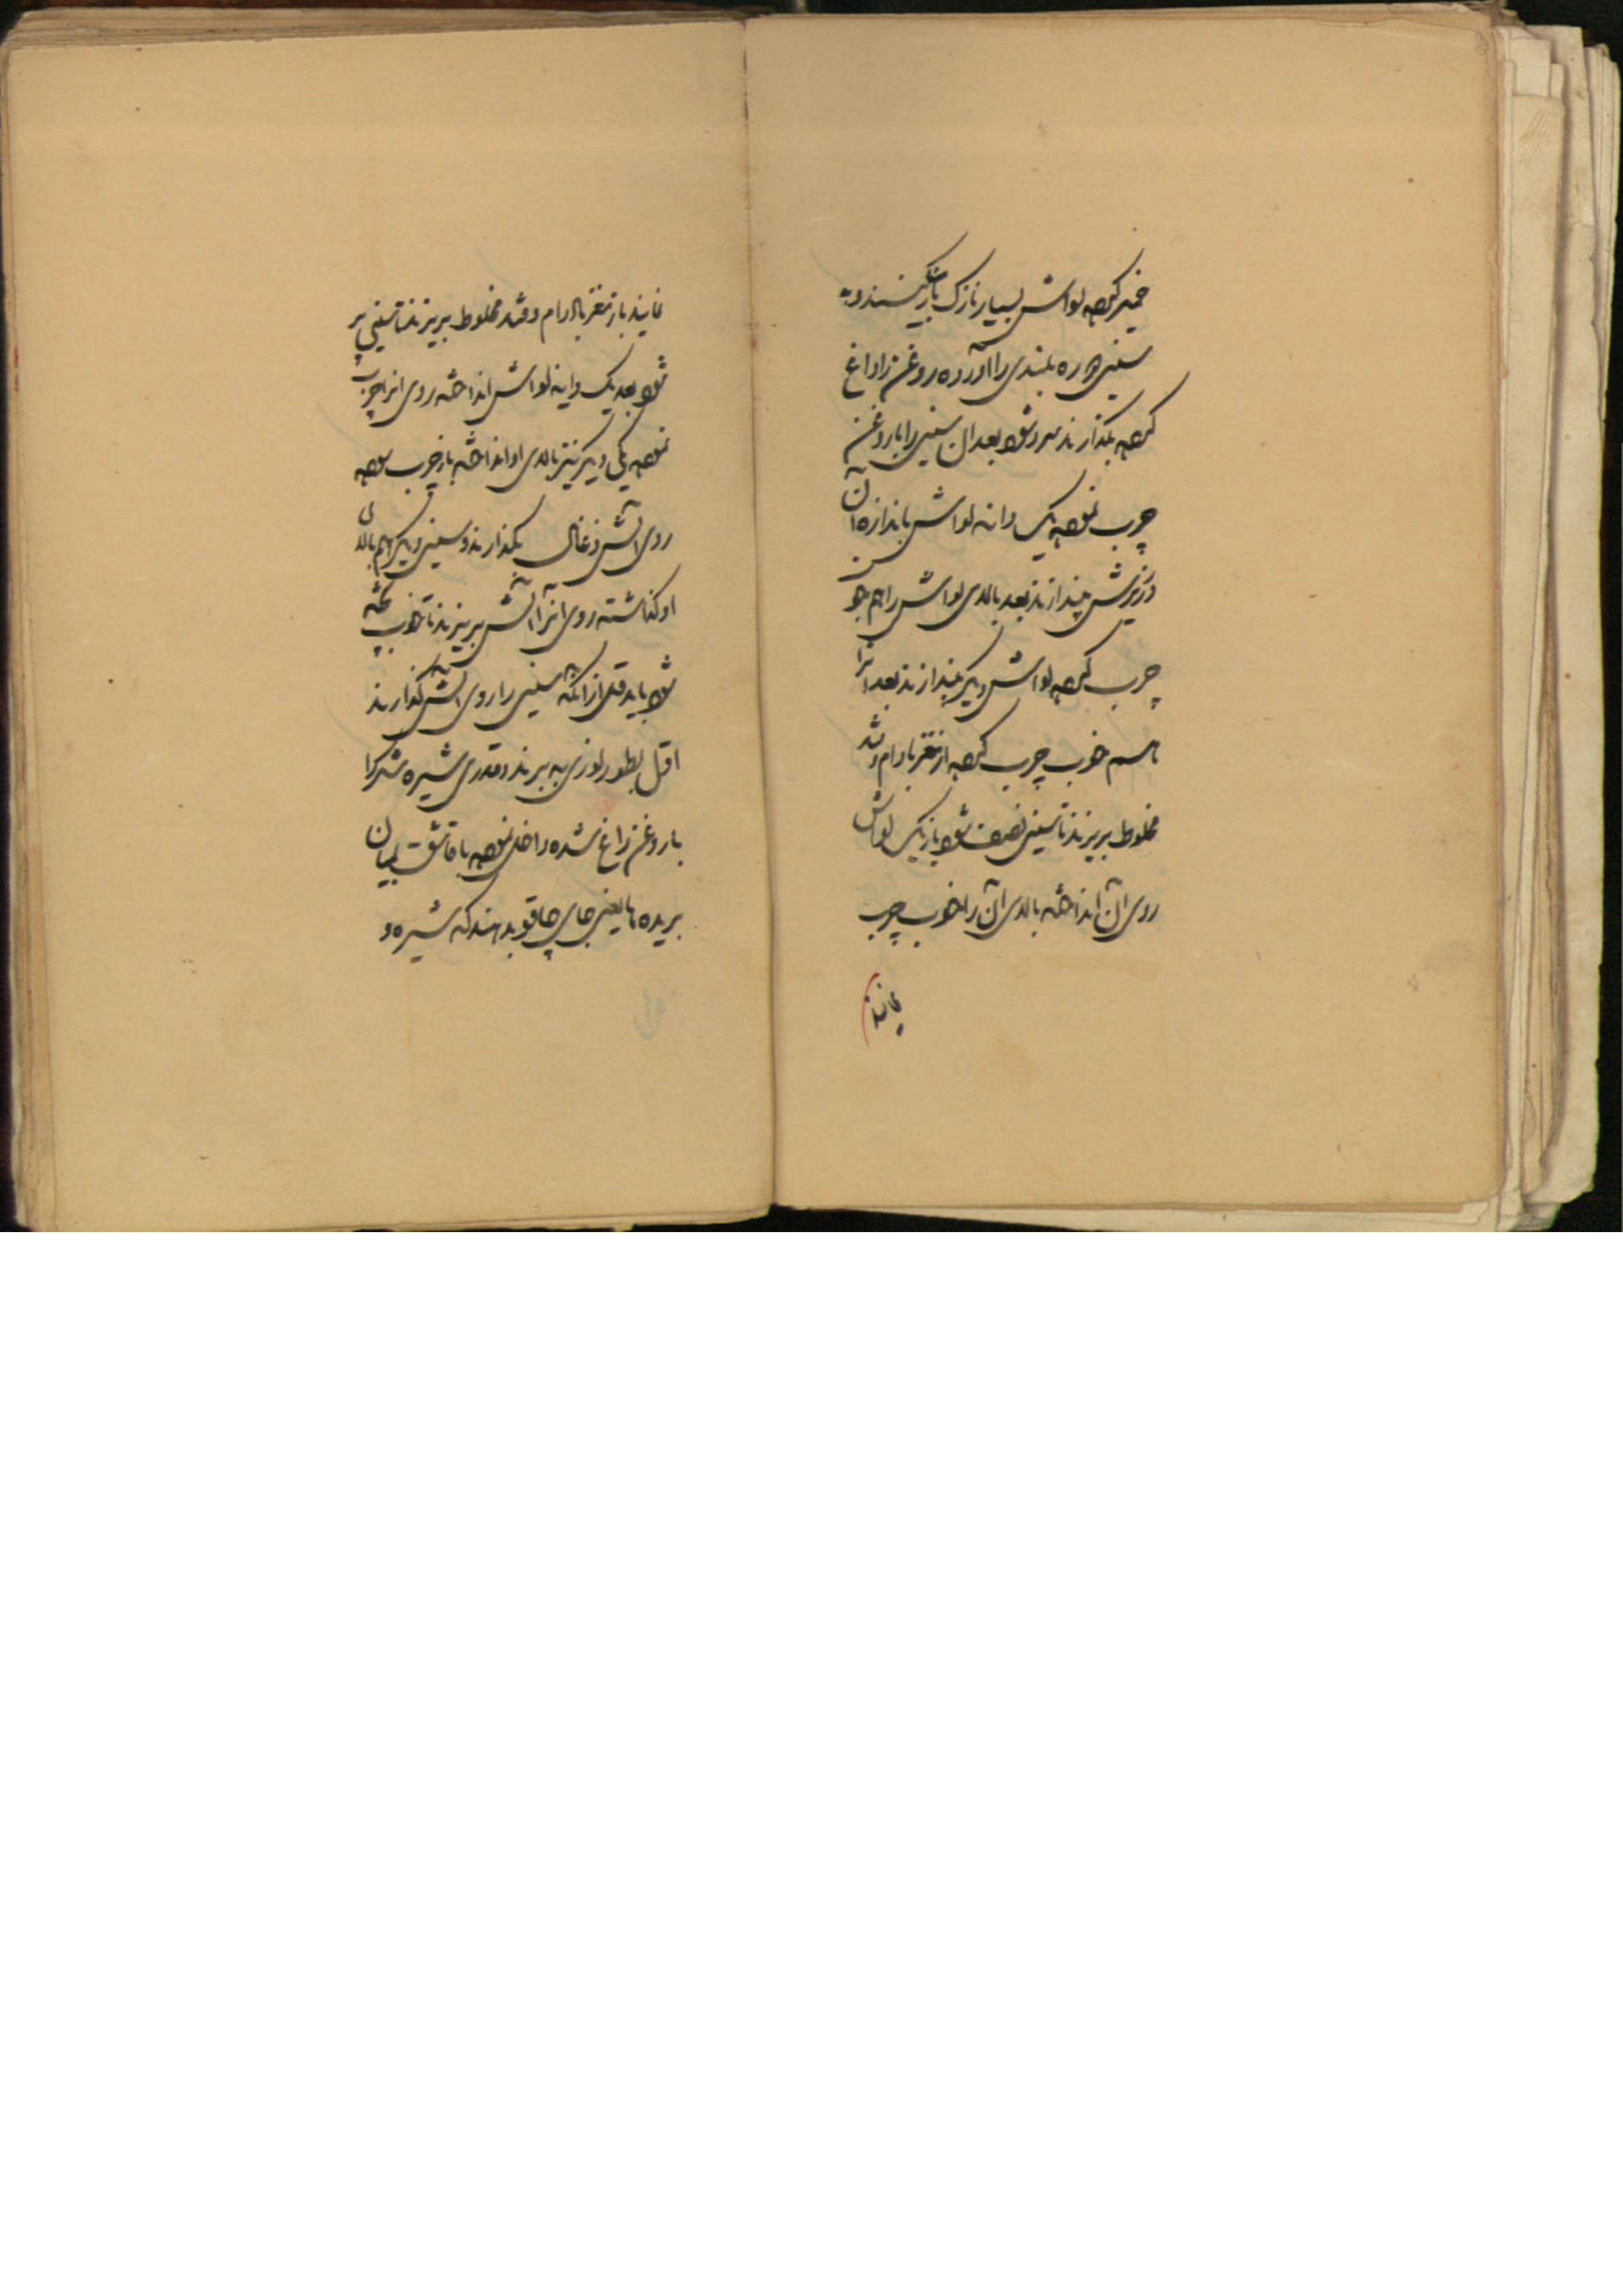 خمیر کرده لواش بسیار نازک باریک کنند و به
سینی دوره بلندی را آورده روغن را داغ
کرده بگذارند سرد شود بعد از آن سینی را با روغن
چرب نموده یک دانه لواش باندازه آن
در زیرش بیندازند بعد بالای لواش را هم خوب
چرب کرده لواش دیگر بیندازند بعد آنرا
هم خوب چرب کرده از مغز بادام و قند
مخلوط بریزند تا سینی نصف شود باز یک لواش
روی آن انداخته بالای آن را خوب چرب
نمایند
نمایند باز مغز بادام و قند مخلوط بریزند تا سینی پر
شود بعد یک دانه لواش انداخته روی آنرا چرب
نموده یکی دیگر نیز بالای او انداخته باز چرب نموده
روی آتش ذغال بگذارند و سینی دیگر هم بالای
او گذاشته روی آنرا آتش بریزند تا خوب پخته
شود باید قبل از آنکه سینی را روی آتش گذارند
اول بطور لوزی به برند و قدری شیره شکر را
با روغن داغ شده داخل نموده با قاشق بمیان
بریده ها یعنی جای چاقو بدهند که شیره و